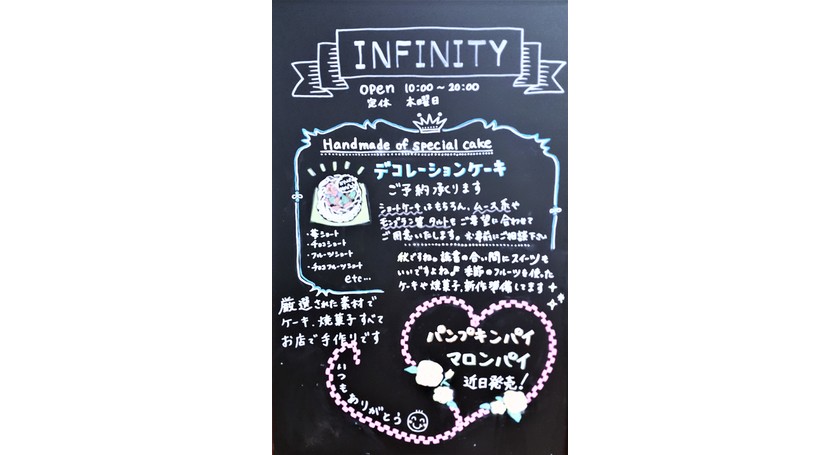 INFINITY
open 10:00〜20:00
定休 木曜日
Handmade of special cake
デコレーションケーキ
ご予約承ります
ショートケーキはもちろん、ムース系や
モンブラン、タルトもご希望に合わせて
ご用意いたします。お事前にご相談下さい
・苺ショート
・チョコショート
・フルーツショート
・チョコフルーツショート
etc...
秋ですね。読書の合い間にスイーツも
いいですよね♪ 季節のフルーツを使った
ケーキや焼菓子、新作準備してます
厳選された素材で
ケーキ、焼菓子すべて
お店で手作りです
パンプキンパイ
マロンパイ
近日発売!
いつもありがとう